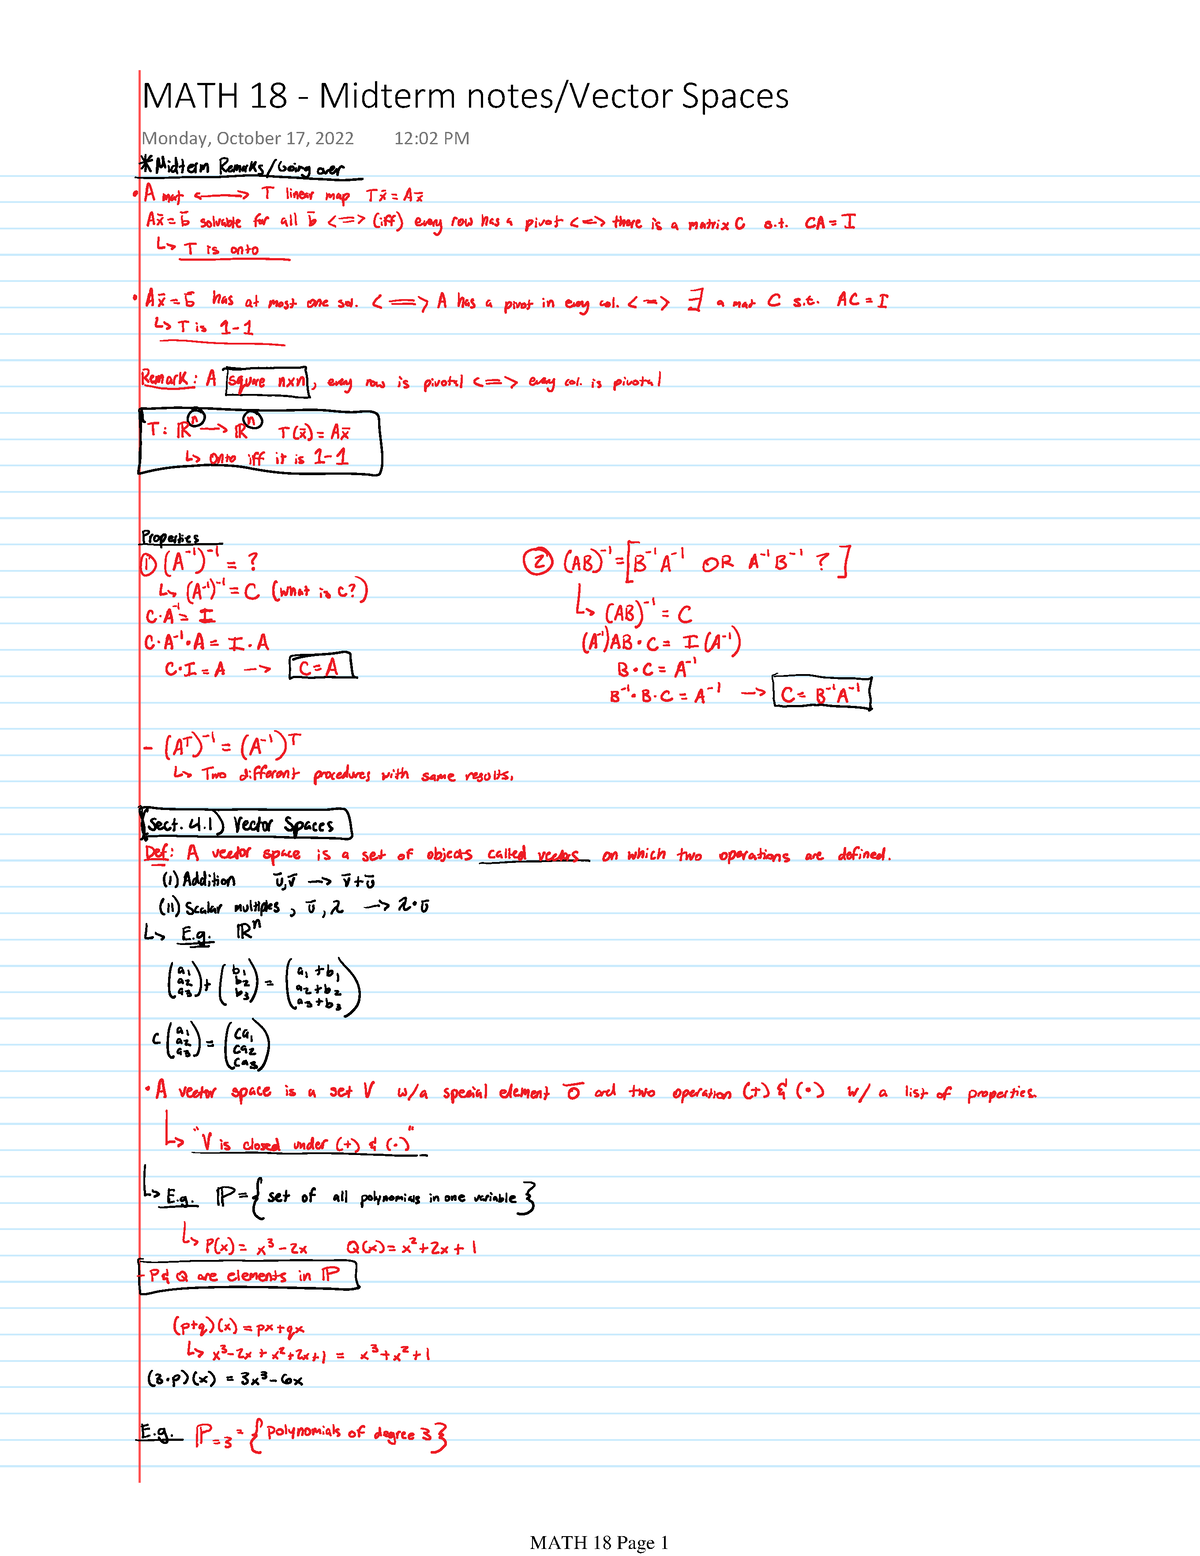 MATH 18 - Midterm notes/Vector Spaces
Monday, October 17, 2022 12:02 PM
*Midterm Remarks/Going over
• A mat <——> T linear map Tx̄ = Ax̄
Ax̄ = b̄ solvable for all b̄ <=> (iff) every row has a pivot <=> there is a matrix C s.t. CA = I
↳ T is onto
• Ax̄ = b̄ has at most one sol. <=> A has a pivot in every col. <=> ∃ a mat C s.t. AC = I
↳ T is 1-1
Remark: A square nxn, every row is pivotal <=> every col. is pivotal
T: ℝⁿ —> ℝⁿ T(x̄) = Ax̄
↳ onto iff it is 1-1
Properties
① (A⁻¹)⁻¹ = ?
↳ (A⁻¹)⁻¹ = C (what is C?)
C·A⁻¹ = I
C·A⁻¹·A = I·A
C·I = A —> C = A
② (AB)⁻¹ = [B⁻¹A⁻¹ OR A⁻¹B⁻¹ ?]
↳ (AB)⁻¹ = C
(A⁻¹)AB·C = I(A⁻¹)
B·C = A⁻¹
B⁻¹·B·C = A⁻¹ —> C = B⁻¹A⁻¹
- (Aᵀ)⁻¹ = (A⁻¹)ᵀ
↳ Two different procedures with same results.
(Sect. 4.1) Vector Spaces
Def: A vector space is a set of objects called vectors on which two operations are defined.
(i) Addition ū,v̄ —> v̄+ū
(ii) Scalar multiples, ū, λ —> λ·ū
↳ E.g. ℝⁿ
(a₁ a₂ a₃) + (b₁ b₂ b₃) = (a₁+b₁ a₂+b₂ a₃+b₃)
c(a₁ a₂ a₃) = (ca₁ ca₂ ca₃)
• A vector space is a set V w/a special element 0̄ and two operation (+) & (·) w/ a list of properties.
↳ "V is closed under (+) & (·)"
↳ E.g. ℙ = {set of all polynomials in one variable}
↳ P(x) = x³ - 2x Q(x) = x² + 2x + 1
- P & Q are elements in ℙ
(p+q)(x) = px + qx
↳ x³ - 2x + x² + 2x + 1 = x³ + x² + 1
(3·p)(x) = 3x³ - 6x
E.g. ℙ₌₃ = {polynomials of degree 3}
MATH 18 Page 1